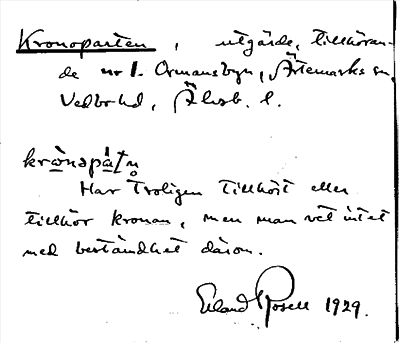 Kronoparten, utgärde, tillhöran-
de nr 1. Ormansbyn, Ärtemarks sn,
Vedbo hd, Älvsb. l.
krωnspàʈn̥
Har troligen tillhört eller
tillhör kronan, men man vet intet
med beständhet därom.
Erland Rosell 1929.